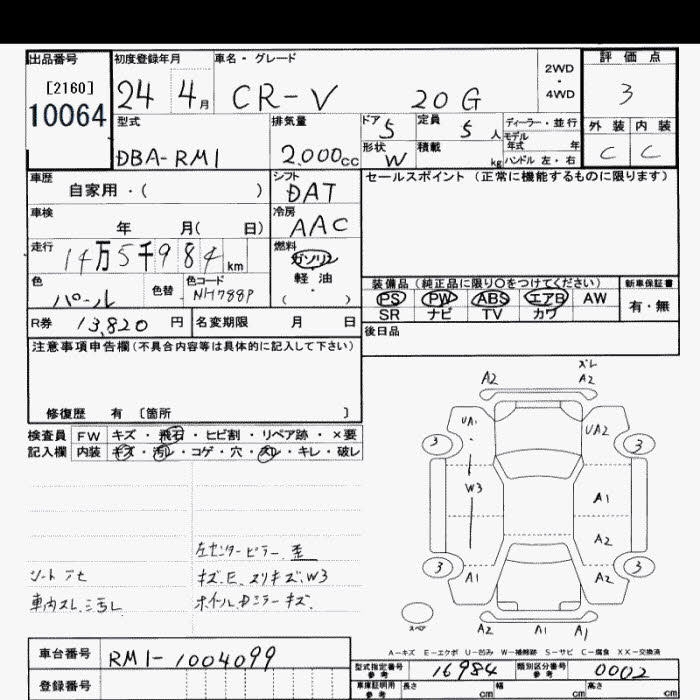 出品番号
[2160]
10064
初度登録年月
24 4月
車名・グレード
CR-V 20G
2WD
・
4WD
評価点
3
外装 内装
C C
型式
DBA-RM1
排気量
2.000cc
ドア 5
定員 5人
ディーラー・並行
モデル年式 年
形状 W
積載 kg
ハンドル 左・右
車歴
自家用・( )
シフト
DAT
セールスポイント(正常に機能するものに限ります)
車検
年 月( 日)
冷房
AAC
走行
14万5千984km
燃料
ガソリン
軽油
( ・ )
色
パール
色替
色コード
NH788P
装備品(純正品に限り〇をつけてください)
新車保証書
PS PW ABS エアB AW
有・無
SR ナビ TV カワ
R券 13,820円
名変期限 月 日
後日品
注意事項申告欄(不具合内容等は具体的に記入して下さい)
修復歴 有〔箇所 〕
検査員
記入欄
FW キズ・飛石・ヒビ割・リペア跡・×要
内装 キズ・汚レ・コゲ・穴・スレ・キレ・破レ
左センターピラー
キズ.E.スリキズ.W3
車内スレ.汚レ
ホイル.Dミラーキズ.
A2
ズレ
A2
UA1
UA2
3
3
W3
A1
A2
3
A1
A2
3
スペア
A2
A1
A1
A-キズ E-エクボ U-凹み W-補修跡 S-サビ C-腐食 XX-交換済
車台番号
RM1-1004099
型式指定番号
参考
16984
類別区分番号
参考
0002
登録番号
車庫証明用
参考
長さ cm
幅 cm
高さ cm